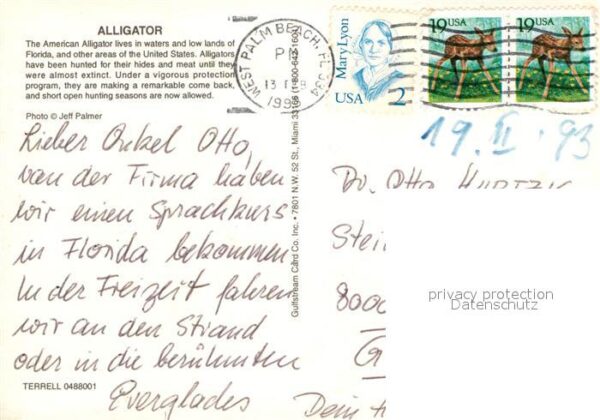 ALLIGATOR
The American Alligator lives in waters and low lands of
Florida, and other areas of the United States. Alligators
have been hunted for their hides and meat until they
were almost extinct. Under a vigorous protection
program, they are making a remarkable come back,
and short open hunting seasons are now allowed.
Photo © Jeff Palmer
Lieber Onkel Otto,
von der Firma haben
wir einen Sprachkurs
in Florida bekommen.
In der Freizeit fahren
wir an den Strand
oder in die berühmten
Everglades
TERRELL 0488001
Gulfstream Card Co. Inc. • 7801 N.W. 52 St., Miami 33166 (1-800-642-1600)
WEST PALM BEACH, FL 334
PM
13 FEB
Mary Lyon
USA 2
19 USA
19 USA
19. II. 93
Dr. Otto
Stei
8000
G
Dein
privacy protection
Datenschutz